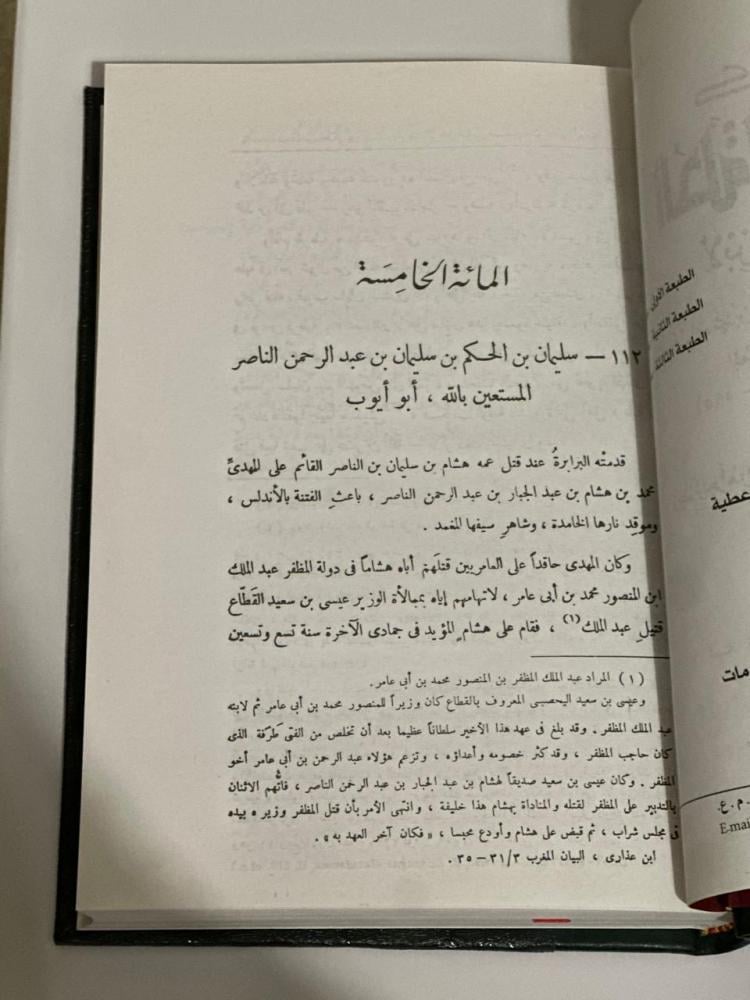 المائة الخامسة
١١٢ — سليمان بن الحكم بن سليمان بن عبد الرحمن الناصر
المستعين بالله ، أبو أيوب
قدمتْه البرابرةُ عند قتل عمه هشام بن سليمان بن الناصر القائم على المهدىِّ
محمد بن هشام بن عبد الجبار بن عبد الرحمن الناصر ، باعثِ الفتنة بالأندلس ،
وموقِد نارها الخامدة ، وشاهرِ سيفها المغمد .
وكان المهدى حاقداً على العامريين قتلَهم أباه هشاماً فى دولة المظفر عبد الملك
ابن المنصور محمد بن أبى عامر ، لاتهامهم إياه بممالأة الوزير عيسى بن سعيد القَطَّاع
قتيلِ عبد الملك(١) ، فقام على هشام المؤيد فى جمادى الآخرة سنة تسع وتسعين
(١) المراد عبد الملك المظفر بن المنصور محمد بن أبى عامر .
وعيسى بن سعيد اليحصبى المعروف بالقطاع كان وزيراً للمنصور محمد بن أبى عامر ثم لابنه
عبد الملك المظفر . وقد بلغ فى عهد هذا الأخير سلطاناً عظيما بعد أن تخلص من الفتى طَرفة الذى
كان حاجب المظفر ، وقد كثر خصومه وأعداؤه ، وتزعم هؤلاء عبد الرحمن بن أبى عامر أخو
المظفر . وكان عيسى بن سعيد صديقاً لهشام بن عبد الجبار بن عبد الرحمن الناصر ، فاتُّهم الاثنان
بالتدبير على المظفر لقتله والمناداة بهشام هذا خليفة ، وانتهى الأمر بأن قتل المظفر وزيره بيده
فى مجلس شراب ، ثم قبض على هشام وأودع محبسا ، « فكان آخر العهد به » .
ابن عذارى ، البيان المغرب ٣/٣١ — ٣٥ .
الطبعة الأولى
الطبعة الثانية
الطبعة الثالثة
عطية
م . ع .